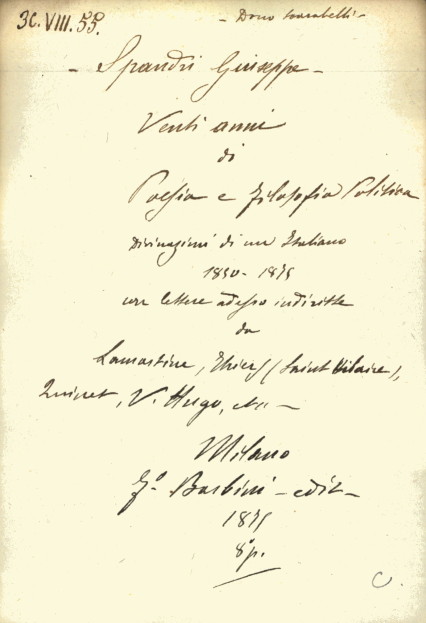 3C.VIII.55.
- Dono Scarabelli -
- Spandri Giuseppe -
Venti anni
di
Poesia e Filosofia Politica
Divinazioni di un Italiano
1850 - 1875
con lettere adesso indiritte
da
Lamartine, Thiers (Saint Hilaire),
Quinet, V. Hugo, etc -
Milano
F.º Barbini - edit -
1875
8º p.
C.